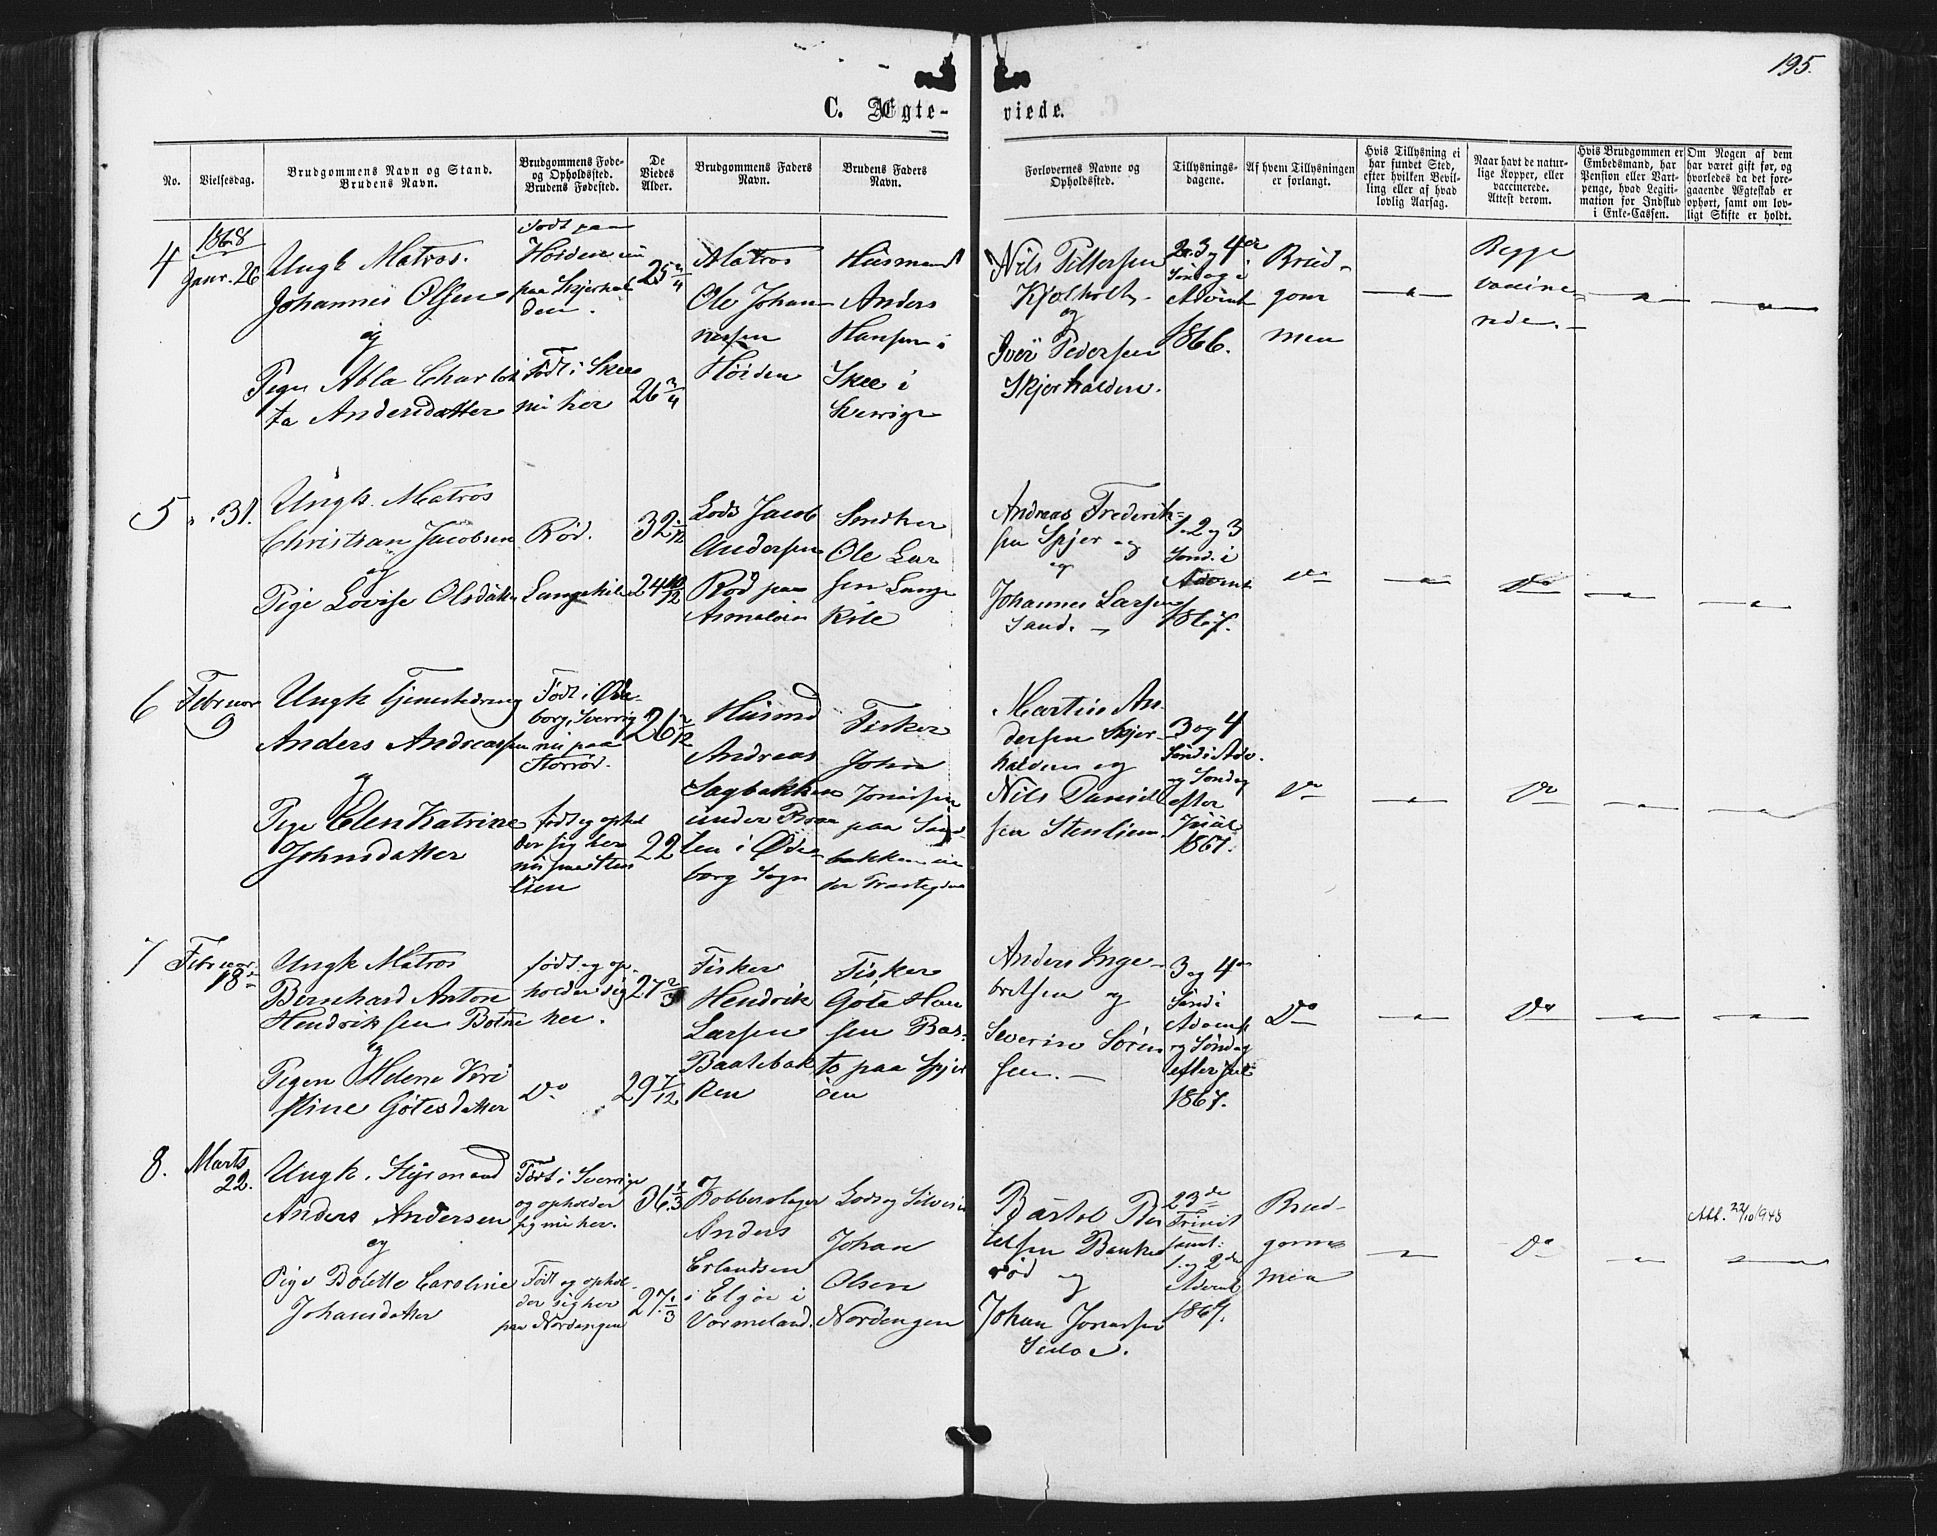 195.
C. Ægte- viede.
No.
Vielsesdag.
Brudgommens Navn og Stand.
Brudens Navn.
Brudgommens Føde-
og Opholdssted.
Brudens Fødested.
De
Viedes
Alder.
Brudgommens Faders
Navn.
Brudens Faders
Navn.
Forlovernes Navne og
Opholdssted.
Tillysnings-
dagene.
Af hvem Tillysningen
er forlangt.
Hvis Tillysning ei
har fundet Sted,
efter hvilken Bevil-
ling eller af hvad
lovlig Aarsag.
Naar havt de natur-
lige Kopper, eller
vaccinerede.
Attest derom.
Hvis Brudgommen er
Embedsmand, har
Pension eller Vart-
penge, hvad Legiti-
mation for Indskud
i Enke-Cassen.
Om Nogen af dem
har været gift før, og
hvorledes da det fore-
gaaende Ægteskab er
ophørt, samt om lov-
ligt Skifte er holdt.
4
1868
Janr. 26
Ungk Matros.
Johannes Olsen
og
Pige Abla Charlot
ta Andersdatter
Født paa
Høiden nu
paa Skjærhal
den.
Født i Skee
nu her
25 3/4
26 3/4
Matros
Ole Johan-
nessen
Høiden
Husmand
Anders
Hansen i
Skee i
Sverige
Nils Pettersen
Kjølholt
og
Iver Pedersen
Skjærhalden.
2. 3 og 4de
Søndag i
Advent
1866.
Brud-
gom
men
Begge
vaccine-
rede.
5
" 31.
Ungk. Matros
Christian Jacobsen
og
Pige Lovise Olsdatter
Rød.
Langekile
32 1/12
24 10/12
Lods Jacob
Andersen
Rød paa
Asmaløen
Snedker
Ole Lar
sen Lange
kile
Andreas Frederik-
sen Spjær og
og
Johannes Larsen
Sand.
1. 2 og 3
Sønd. i
Advent
1867.
Do
Do
6
Februar
9
Ungk Tjenestedreng
Anders Andreassen
og
Pige Elen Katrine
Johnsdatter
Født i Øde-
borg, Sverrig
nu paa
Storrød.
født og ophol
der sig her
nu paa Sten
lien
26 2/12
22
Husmd
Andreas
Sagbakken
under Bra
ten i Øde-
borg Sogn
Fisker
John
Jonassen
paa Sand
bakken un
der Præstegden
Martin An-
dersen Skjær-
halden og
Nils Daniel
sen Stenlien.
3 og 4
Sønd i Adv.
og Søndag
efter
Juul
1867.
Do
Do
7
Februar
18
Ungk Matros
Bernhard Anton
Hendriksen Botne
og
Pigen Helene Kri
stine Gøtesdatter
født og op-
holder sig
her.
Do
27 2/3
29 7/12
Fisker
Hendrik
Larsen
Baatebak
ken
Fisker
Gøte Han
sen Bas-
to paa Spjær
øen
Anders Inge-
bretsen og
Severin Søren
sen.
3 og 4de
Sønd i
Advent
og Søndag
efter Jul
1867.
Do
Do
8.
Marts
22.
Ungk. Styrmand
Anders Andersen
og
Pige Bolette Caroline
Johansdatter
Født i Sverrige
og opholder
sig nu her.
Født og ophol-
der sig her
paa Nordengen
36 1/3
27 1/3
Bobberslager
Anders
Erlandsen
i Elgøe i
Vermeland.
Lods og Selveier
Johan
Olsen
Nordengen
Bartol Ber
telsen Banke
rød og
Johan Jonassen
23de
Trinit
samt
1. og 2de
i Advent
1867.
Brud-
gom-
men
Do
Att. 22/10 1943